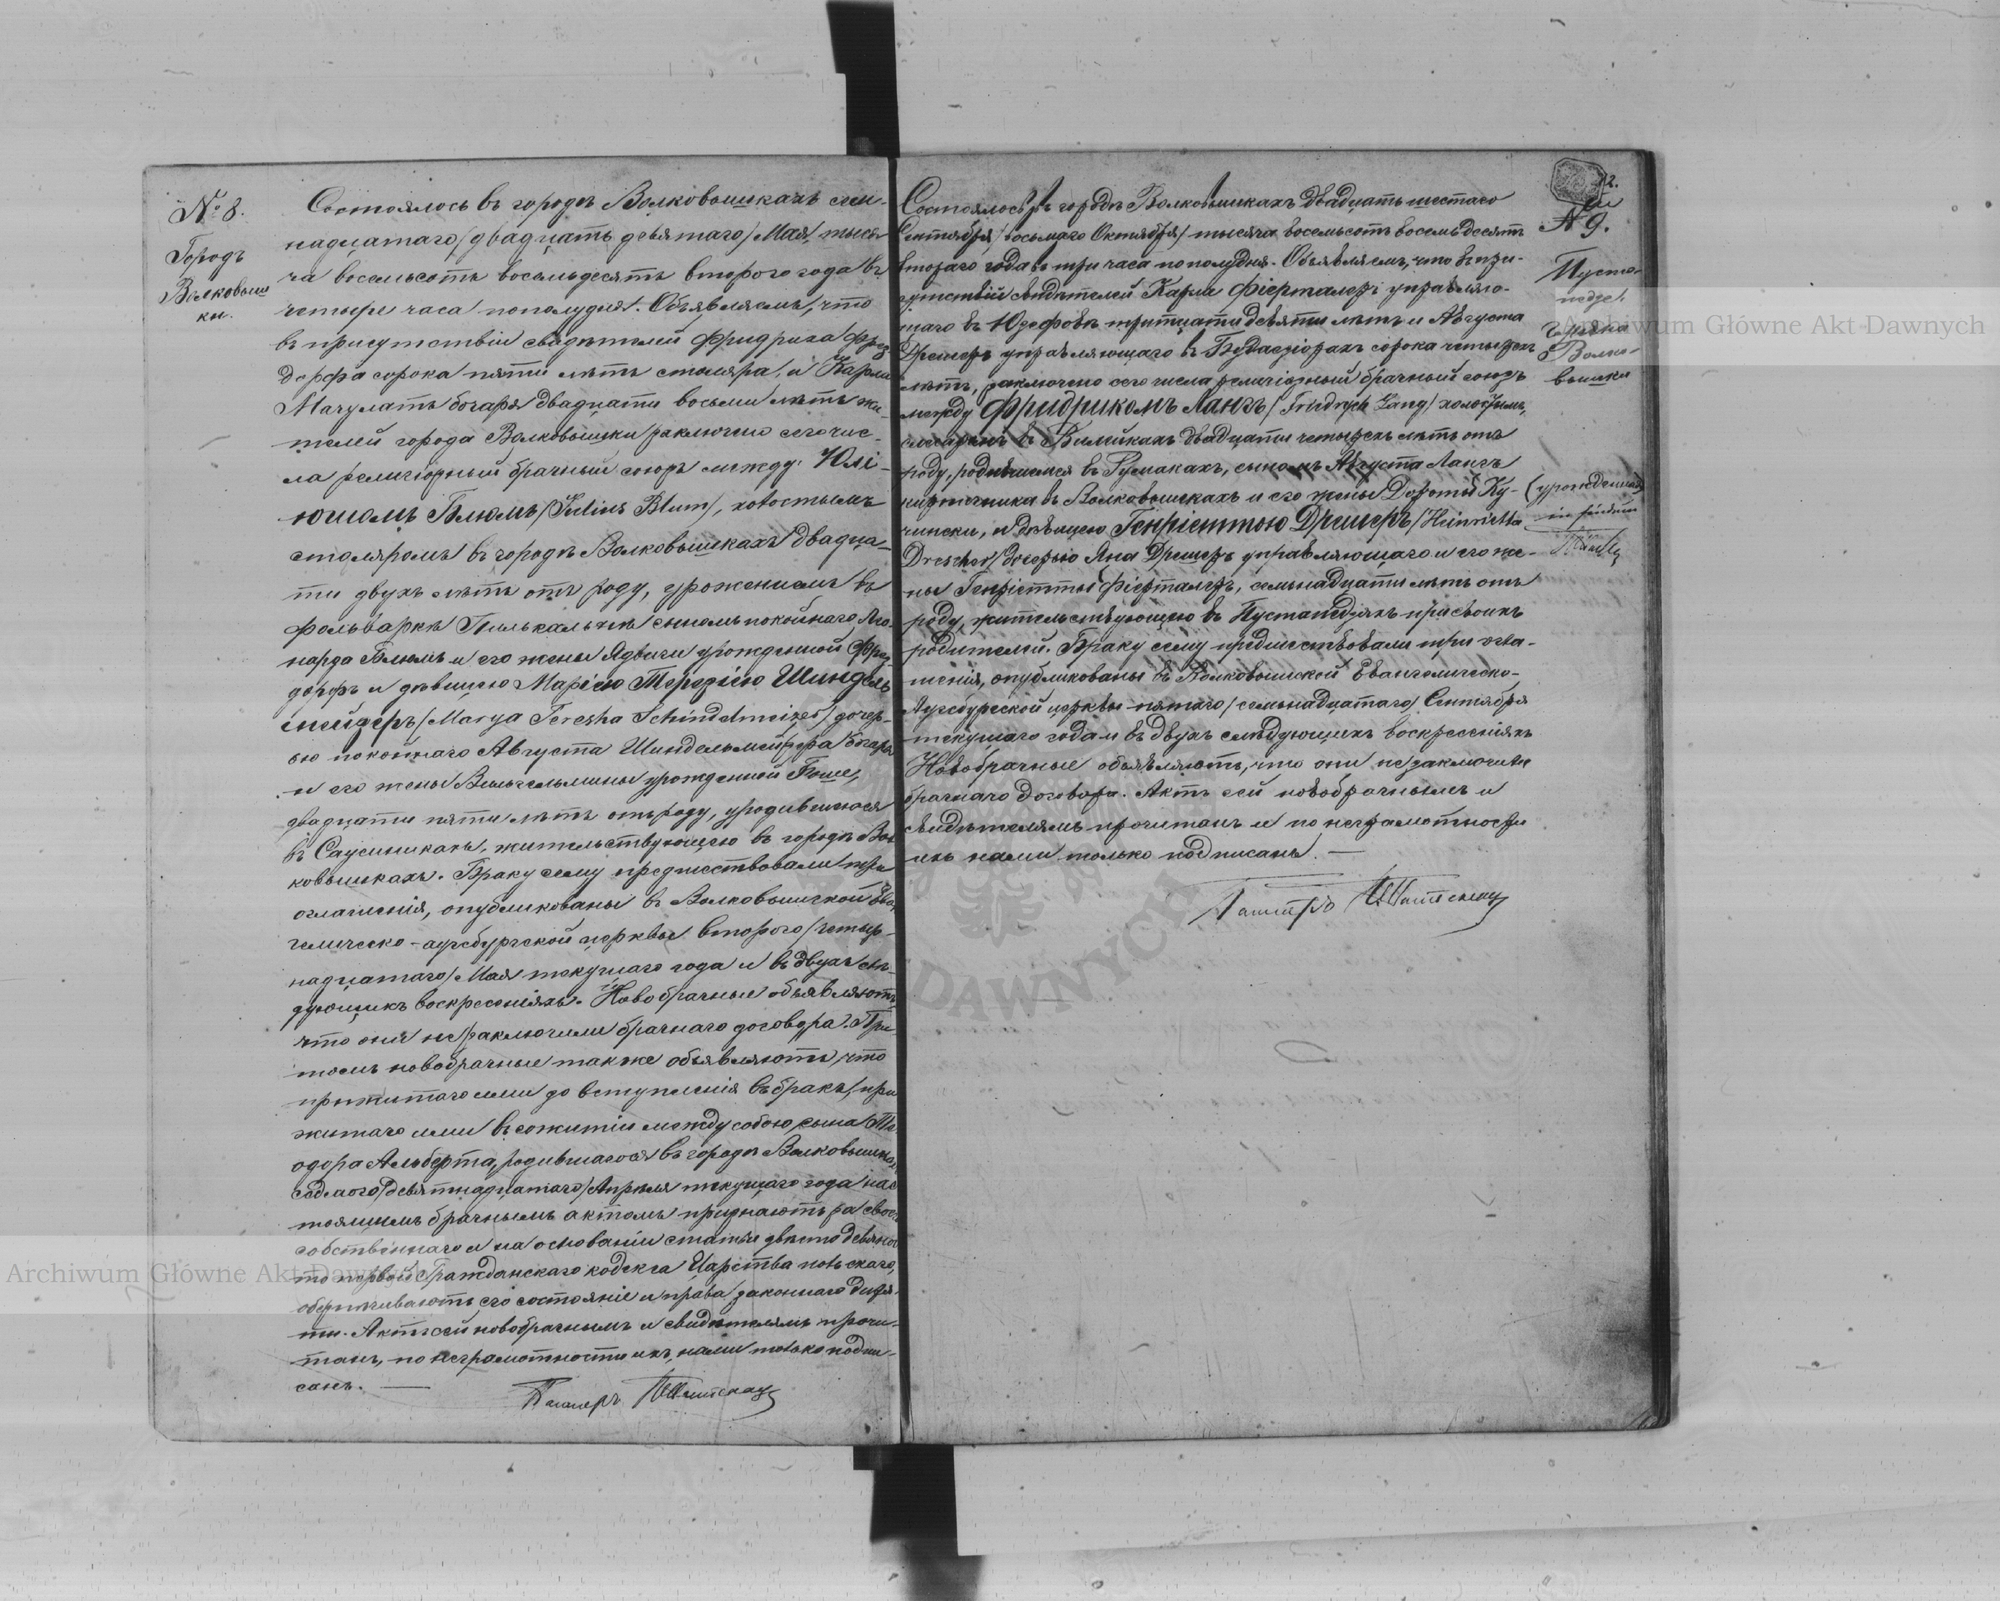 № 8.
Городъ
Волковыш
ки.
Состоялось въ городѣ Волковышкахъ сем-
надцатаго/двадцать девятаго/ Мая, тыся
ча восемьсотъ восемьдесятъ второго года въ
четыре часа пополудни. Объявляемъ, что
въ присутствіи свидѣтелей Фридриха Фрез
дорфа сорока пяти лѣтъ столяра, и Карла
Мачулатъ бочаря двадцати восьми лѣтъ жи-
телей города Волковышки заключено сего чис-
ла религіозный брачный союзъ между: Юлі-
юшомъ Блюмъ /Julius Blum/, холостымъ
столяромъ въ городѣ Волковышкахъ двадца-
ти двухъ лѣтъ отъ роду, урожденцемъ въ
фольваркѣ сыномъ покойнаго
нарда Блюмъ и его жены Ядвиги урожденной Фрез
дорфъ и дѣвицею Маріею Терезіею Шиндель
мейзеръ /Marya Teresha Schindelmeizer/ дочер-
ью покойнаго Августа Шиндельмейзера бочаря
и его жены Вильгельмины урожденной Гоше,
двадцати пяти лѣтъ отъ роду, уродившеюся
въ жительствующею въ городѣ Вол
ковышкахъ. Браку сему предшествовали три
оглашенія, опубликованы въ Волковышской Еван
гелическо-аугсбургской церквы второго/четыр-
надцатаго/ Мая текущаго года и въ двухъ слѣ-
дующихъ воскресеніяхъ. Новобрачные объявляютъ,
что они не заключили брачнаго договора. При
томъ новобрачные также объявляютъ, что
прижитаго ими до вступленія въ бракъ, при
житаго ими въ сожитіи между собою сына Те
одора Альберта, родившагося въ городѣ Волковышках
седмого/девятнадцатаго/ Апрѣля текущаго года нас
тоящимъ брачнымъ актомъ признаютъ за своего
собственнаго и на основаніи статьи двѣсто девянос
то первой Гражданскаго кодекса Царства польскаго,
обезпечиваютъ его состояніе и права законнаго дитя-
ти. Актъ сей новобрачнымъ и свидѣтелямъ прочи-
танъ, по неграмотности ихъ, нами только подпи-
санъ. —
12.
№ 9.
Пусто-
педзе
Волко-
вышки
Состоялось въ городѣ Волковышкахъ двадцать шестаго
Сентября/восьмаго Октября/ тысяча восемьсотъ восемьдесятъ
втораго года въ три часа пополудни. Объявляемъ, что въ при-
сутствіи свидѣтелей Карла Фіерталеръ управляю-
щаго въ Юзефовѣ тритцати девяти лѣтъ и Августа
Дрешеръ управляющаго въ сорока четырехъ
лѣтъ, заключено сего числа религіозный брачный союзъ
между Фридрихомъ Лангъ /Fridrych Lang/ холостымъ,
слесаремъ въ двадцати четырехъ лѣтъ отъ
роду, родившимся въ Румакахъ, сыномъ Августа Лангъ
въ Волковышкахъ и его жены Доротеи Ку- (урожденная)
чински, и дѣвицею Генріеттою Дрешеръ /Heinrietta
Drescher/ дочерью Яна Дрешеръ управляющаго и его же-
ны Генріетты Фіерталеръ, семьнадцати лѣтъ отъ
роду, жительствующею въ Пустапедзяхъ при своихъ
родителей. Браку сему предшествовали три огла-
шенія, опубликованы въ Волковышской Евангелическо-
Аугсбургской церквы пятаго/семьнадцатаго/ Сентября
текущаго года и въ двухъ слѣдующихъ воскресеніяхъ
Новобрачные объявляютъ, что они не заключили
брачнаго договора. Актъ сей новобрачнымъ и
свидѣтелямъ прочитанъ и по неграмотности
ихъ нами только подписанъ. —
Archiwum Główne Akt Dawnych
Archiwum Główne Akt Dawnych
DAWNYCH